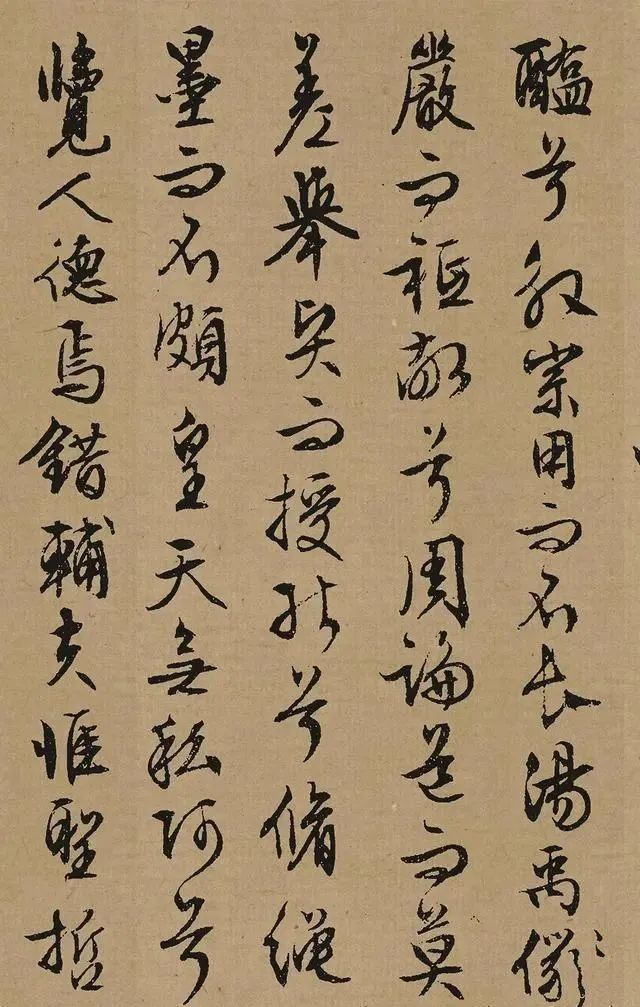 醢兮殷宗用而不長湯禹儼
嚴而祗敬兮周論道而莫
差舉賢而授能兮脩繩
墨而不頗皇天無私阿兮
覽人德焉錯輔夫惟聖哲